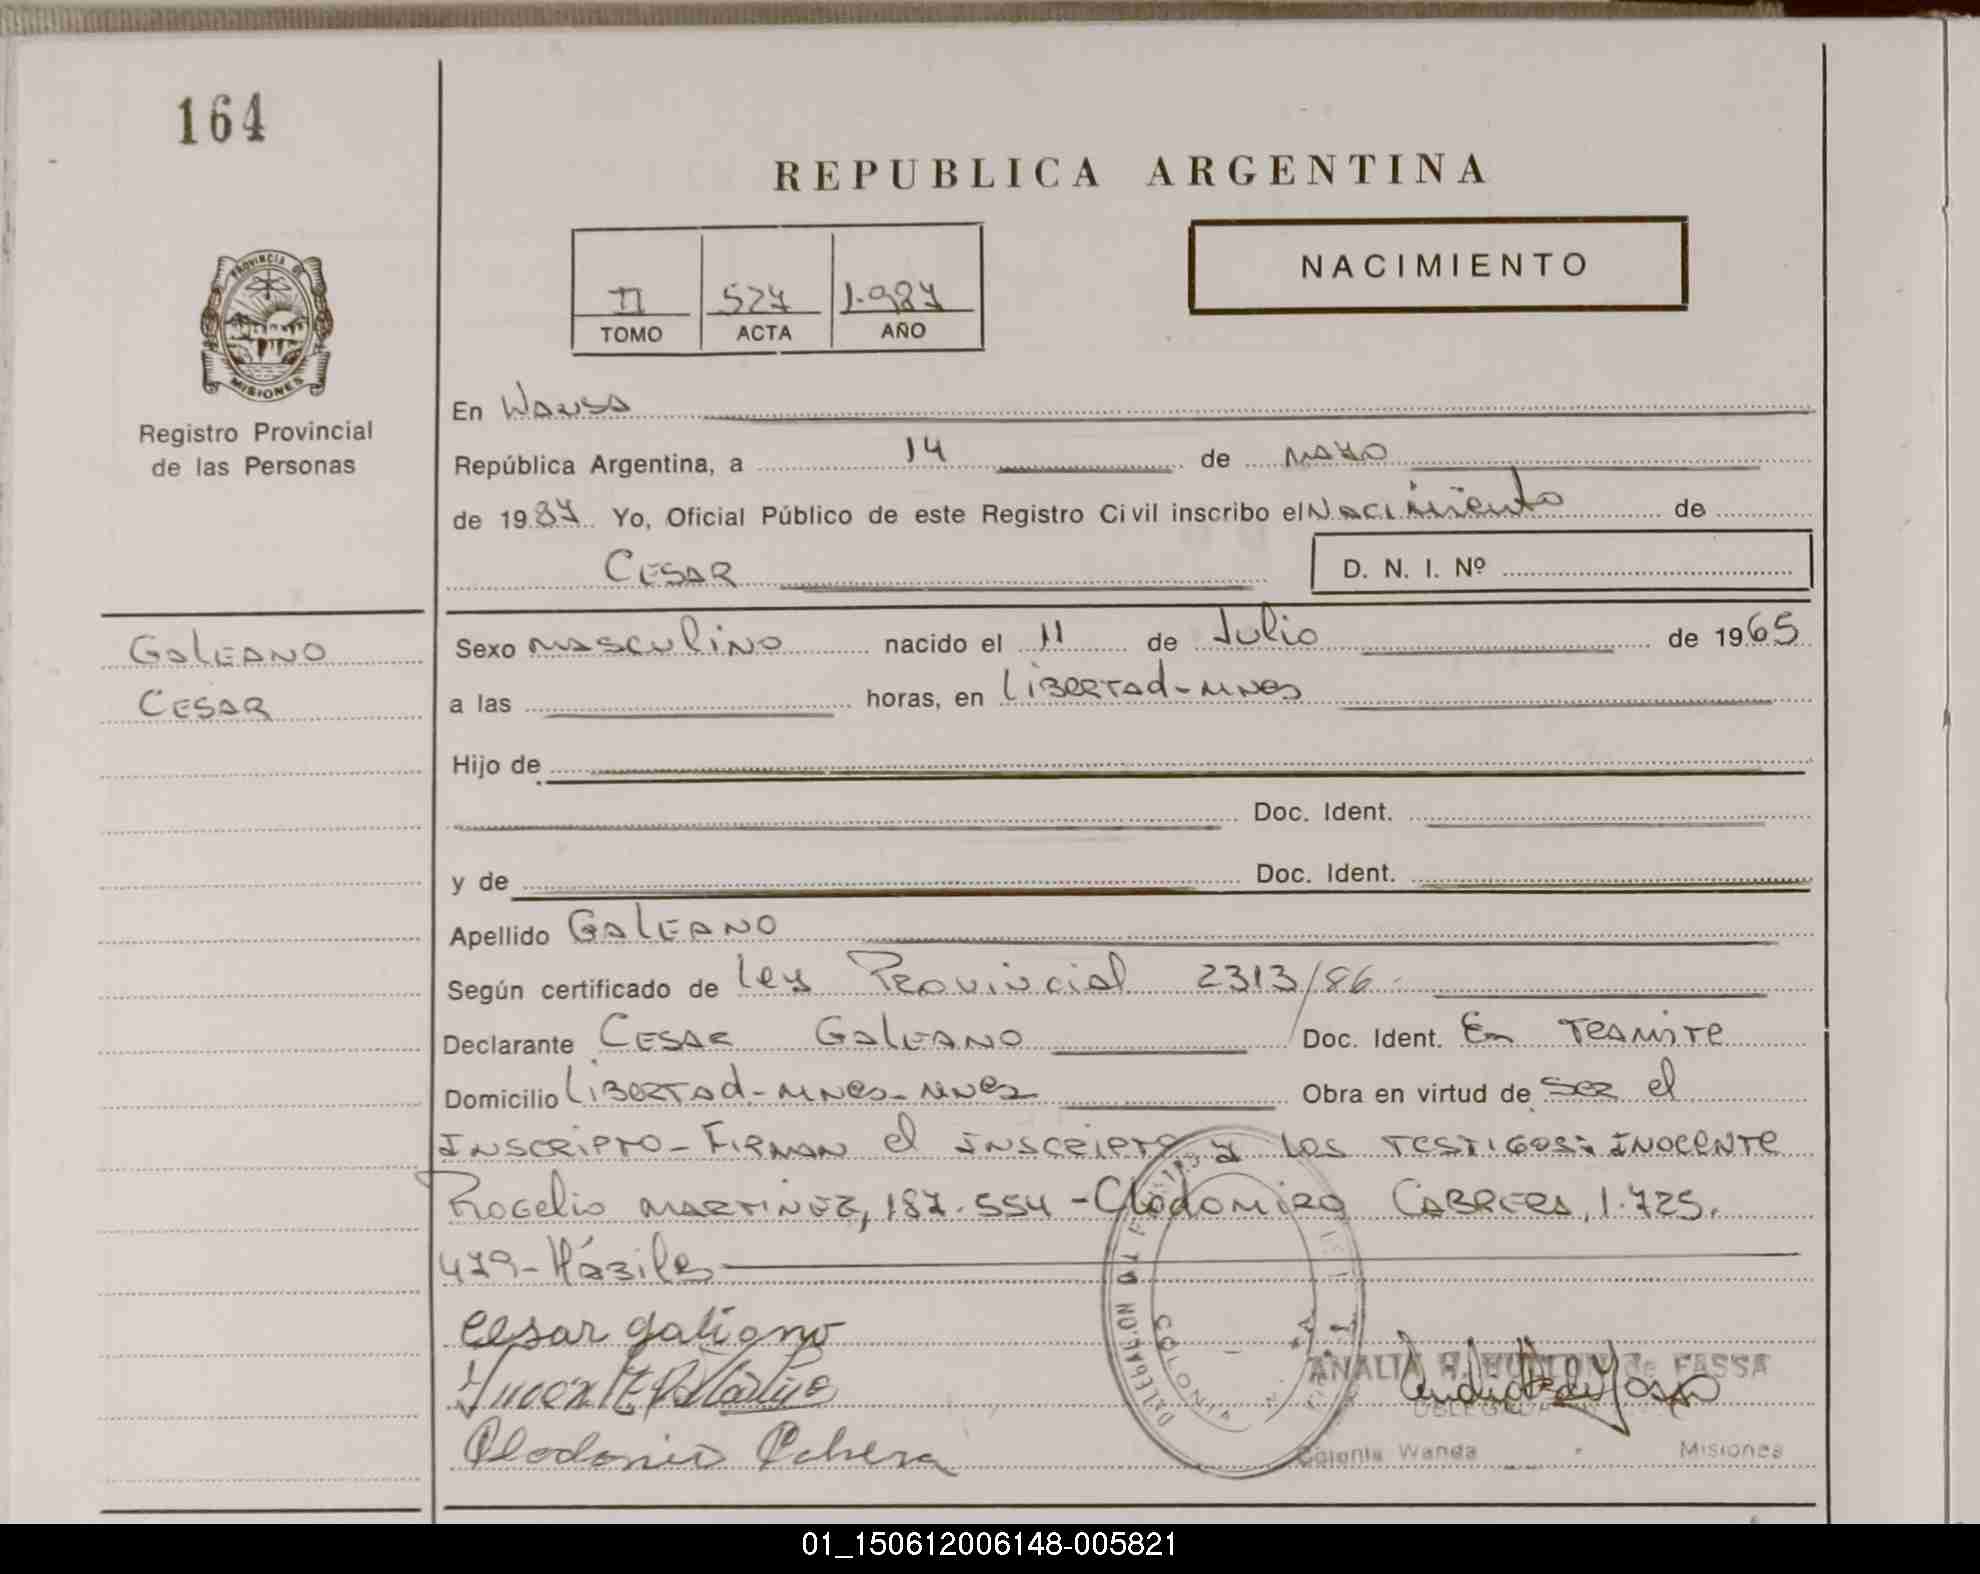 164
REPUBLICA ARGENTINA
PROVINCIA DE
MISIONES
Registro Provincial
de las Personas
II 527 1.987
TOMO ACTA AÑO
NACIMIENTO
En Wanda
República Argentina, a 14 de mayo
de 1987 Yo, Oficial Público de este Registro Civil inscribo el Nacimiento de
CESAR D. N. I. Nº
GALEANO
CESAR
Sexo masculino nacido el 11 de Julio de 1965
a las horas, en Libertad-Mnes
Hijo de
Doc. Ident.
y de Doc. Ident.
Apellido GALEANO
Según certificado de Ley Provincial 2313/86.
Declarante CESAR GALEANO Doc. Ident. En Tramite
Domicilio Libertad-Mnes-Mnes Obra en virtud de ser el
Inscripto-Firman el inscripto y los testigos: Inocente
Rogelio Martinez, 187.554-Clodomiro Cabrera, 1.725.
479-Hábiles
Cesar galiano
Clodomiro Cabrera
ANALIA de FASSA
DELEGADA
Colonia Wanda Misiones
01_150612006148-005821